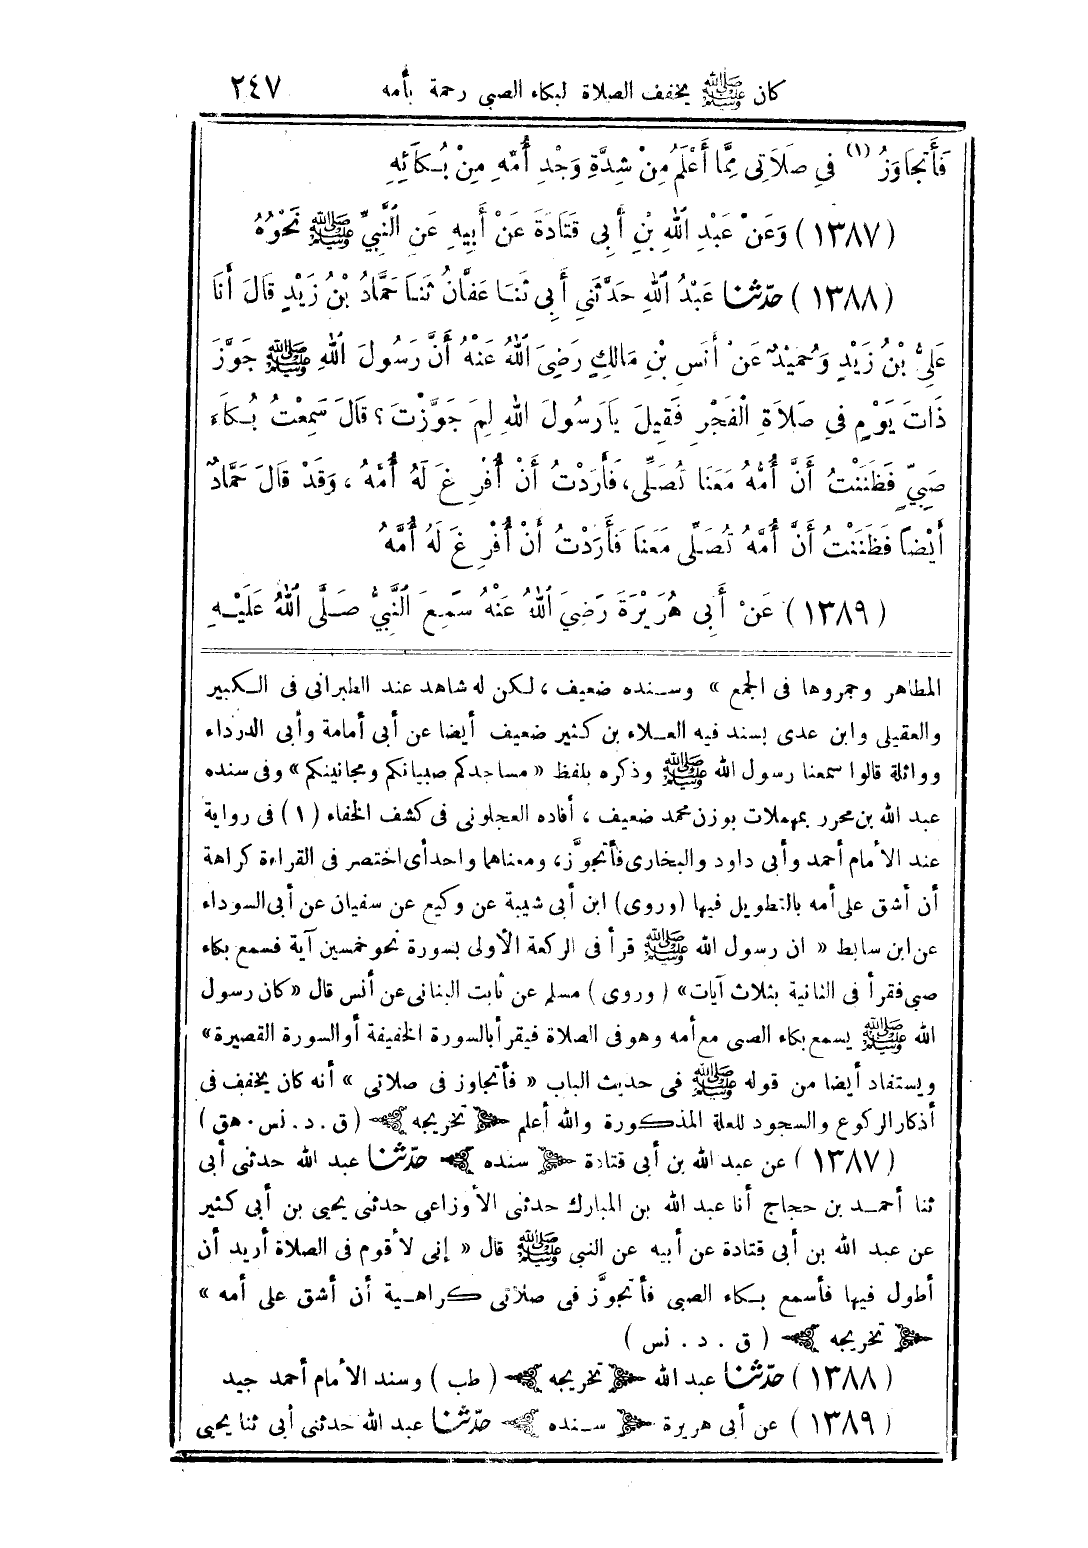 كان ﷺ يخفف الصلاة لبكاء الصبى رحمة بأمه ٢٤٧
فَأَتَجَاوَزُ (١) فِى صَلَاتِى مِمَّا أَعْلَمُ مِنْ شِدَّةِ وَجْدِ أُمِّهِ مِنْ بُكَائِهِ
(١٣٨٧) وَعَنْ عَبْدِ اللهِ بْنِ أَبِى قَتَادَةَ عَنْ أَبِيهِ عَنِ النَّبِيِّ ﷺ نَحْوُهُ
(١٣٨٨) حدّثنا عَبْدُ اللهِ حَدَّثَنِى أَبِى ثَنَا عَفَّانُ ثَنَا حَمَّادُ بْنُ زَيْدٍ قَالَ أَنَا
عَلِىُّ بْنُ زَيْدٍ وَحُمَيْدٌ عَنْ أَنَسِ بْنِ مَالِكٍ رَضِىَ اللهُ عَنْهُ أَنَّ رَسُولَ اللهِ ﷺ جَوَّزَ
ذَاتَ يَوْمٍ فِى صَلَاةِ الْفَجْرِ فَقِيلَ يَا رَسُولَ اللهِ لِمَ جَوَّزْتَ؟ قَالَ سَمِعْتُ بُكَاءَ
صَبِيٍّ فَظَنَنْتُ أَنَّ أُمَّهُ مَعَنَا تُصَلِّى، فَأَرَدْتُ أَنْ أُفْرِغَ لَهُ أُمَّهُ، وَقَدْ قَالَ حَمَّادٌ
أَيْضاً فَظَنَنْتُ أَنَّ أُمَّهُ تُصَلِّى مَعَنَا فَأَرَدْتُ أَنْ أُفْرِغَ لَهُ أُمَّهُ
(١٣٨٩) عَنْ أَبِى هُرَيْرَةَ رَضِيَ اللهُ عَنْهُ سَمِعَ النَّبِيُّ صَلَّى اللهُ عَلَيْهِ
المطاهر وجمروها فى الجمع » وسنده ضعيف ، لكن له شاهد عند الطبرانى فى الكبير
والعقيلى وابن عدى بسند فيه العلاء بن كثير ضعيف أيضا عن أبى أمامة وأبى الدرداء
وواثلة قالوا سمعنا رسول الله ﷺ وذكره بلفظ « مساجدكم صبيانكم ومجانينكم » وفى سنده
عبد الله بن محرر بمهملات بوزن محمد ضعيف ، أفاده العجلونى فى كشف الخفاء (١) فى رواية
عند الأمام أحمد وأبى داود والبخارى فأتجوَّز، ومعناهما واحد أى اختصر فى القراءة كراهة
أن أشق على أمه بالتطويل فيها (وروى) ابن أبى شيبة عن وكيع عن سفيان عن أبى السوداء
عن ابن سابط « ان رسول الله ﷺ قرأ فى الركعة الأولى بسورة نحو خمسين آية فسمع بكاء
صبى فقرأ فى الثانية بثلاث آيات » (وروى) مسلم عن ثابت البنانى عن أنس قال «كان رسول
الله ﷺ يسمع بكاء الصبى مع أمه وهو فى الصلاة فيقرأ بالسورة الخفيفة أو السورة القصيرة»
ويستفاد أيضا من قوله ﷺ فى حديث الباب « فأتجاوز فى صلاتى » أنه كان يخفف فى
أذكار الركوع والسجود للعلة المذكورة والله أعلم تخريجه (ق . د . نس . هق)
(١٣٨٧) عن عبد الله بن أبى قتادة سنده حدّثنا عبد الله حدثنى أبى
ثنا أحمد بن حجاج أنا عبد الله بن المبارك حدثنى الأوزاعى حدثنى يحيى بن أبى كثير
عن عبد الله بن أبى قتادة عن أبيه عن النبى ﷺ قال « إنى لأقوم فى الصلاة أريد أن
أطول فيها فأسمع بكاء الصبى فأتجوَّز فى صلاتى كراهية أن أشق على أمه »
تخريجه (ق . د . نس)
(١٣٨٨) حدّثنا عبد الله تخريجه (طب) وسند الأمام أحمد جيد
(١٣٨٩) عن أبى هريرة سنده حدّثنا عبد الله حدثنى أبى ثنا يحيى